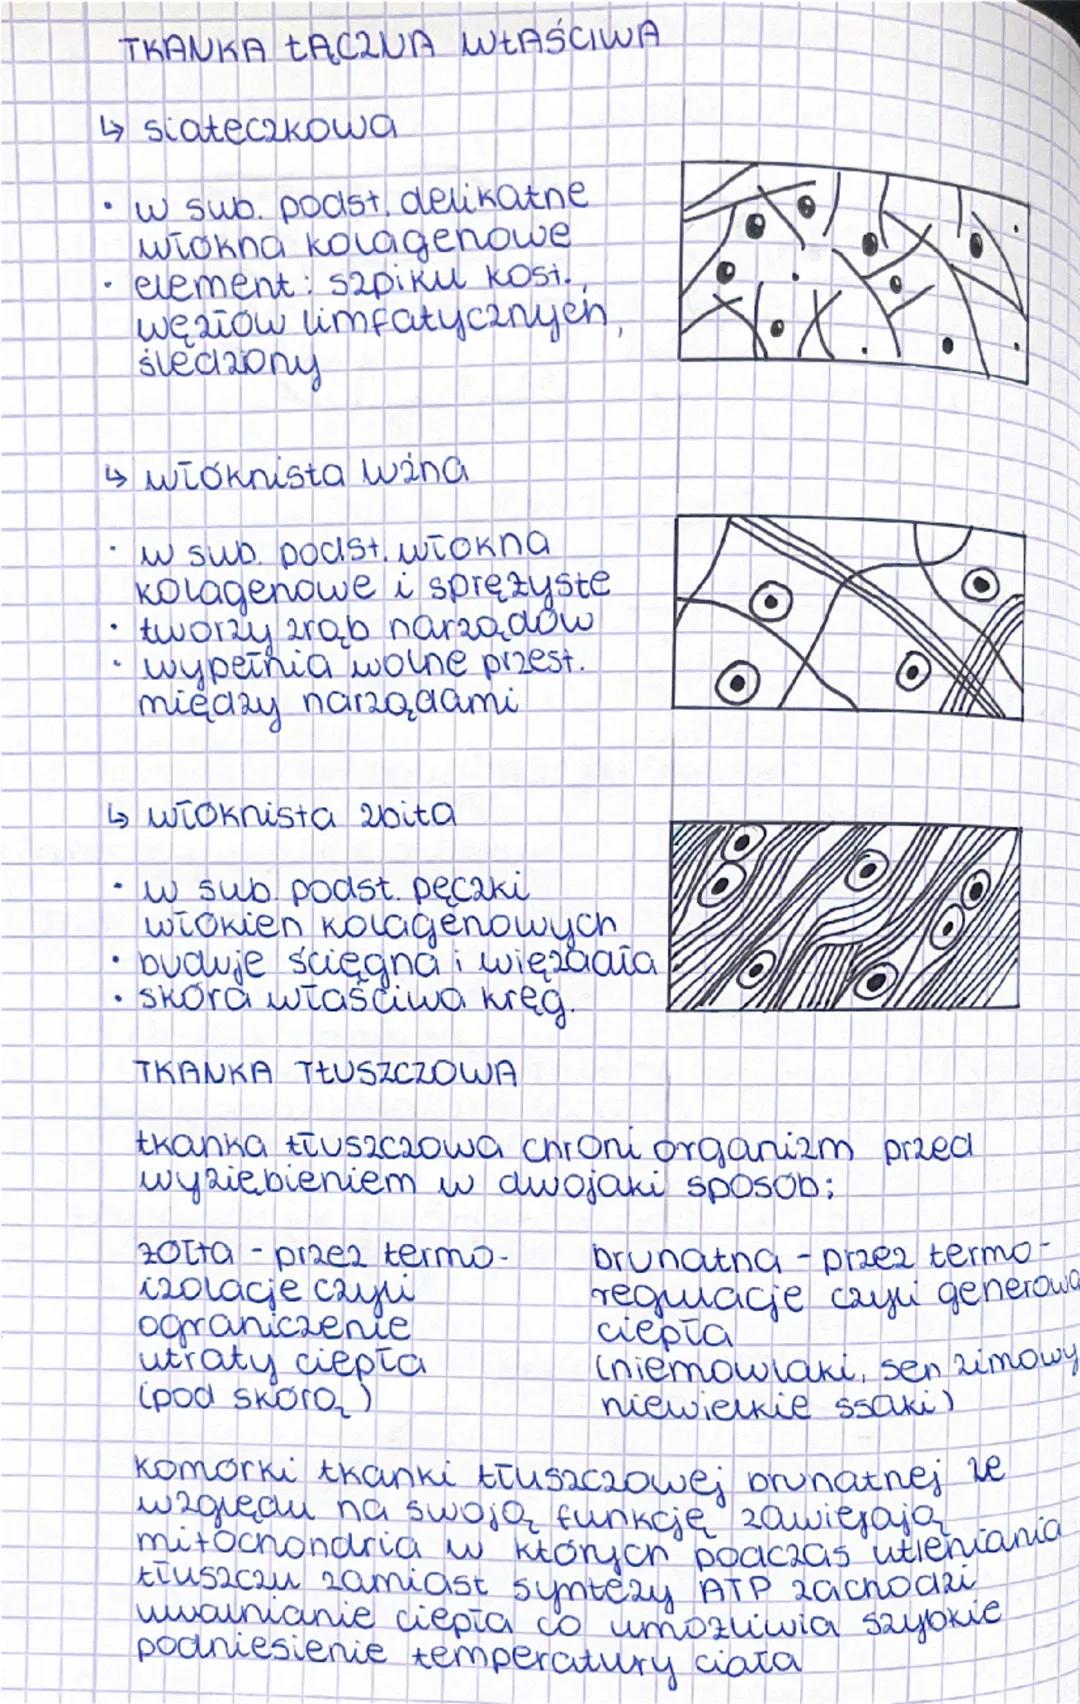 TKANKA ŁĄCZNA WŁAŚCIWA
↳ siateczkowa
• w sub. podst. delikatne
włókna kolagenowe
• element: szpiku kost.,
węzłów limfatycznych,
śledziony
↳ włóknista luźna
• w sub. podst. włókna
kolagenowe i sprężyste
• tworzy zrąb narządów
• wypełnia wolne przest.
między narządami
↳ włóknista zbita
• w sub. podst. pęczki
włókien kolagenowych
• buduje ścięgna i więzadła
• skóra właściwa kręg.
TKANKA TŁUSZCZOWA
tkanka tłuszczowa chroni organizm przed
wyziębieniem w dwojaki sposób:
żółta - przez termo-
izolację czyli
ograniczenie
utraty ciepła
(pod skórą)
brunatna - przez termo-
regulację czyli generowa
ciepła
(niemowlaki, sen zimowy
niewielkie ssaki)
komórki tkanki tłuszczowej brunatnej ze
względu na swoją funkcję zawierają
mitochondria w których podczas utleniania
tłuszczu zamiast syntezy ATP zachodzi
uwalnianie ciepła co umożliwia szybkie
podniesienie temperatury ciała